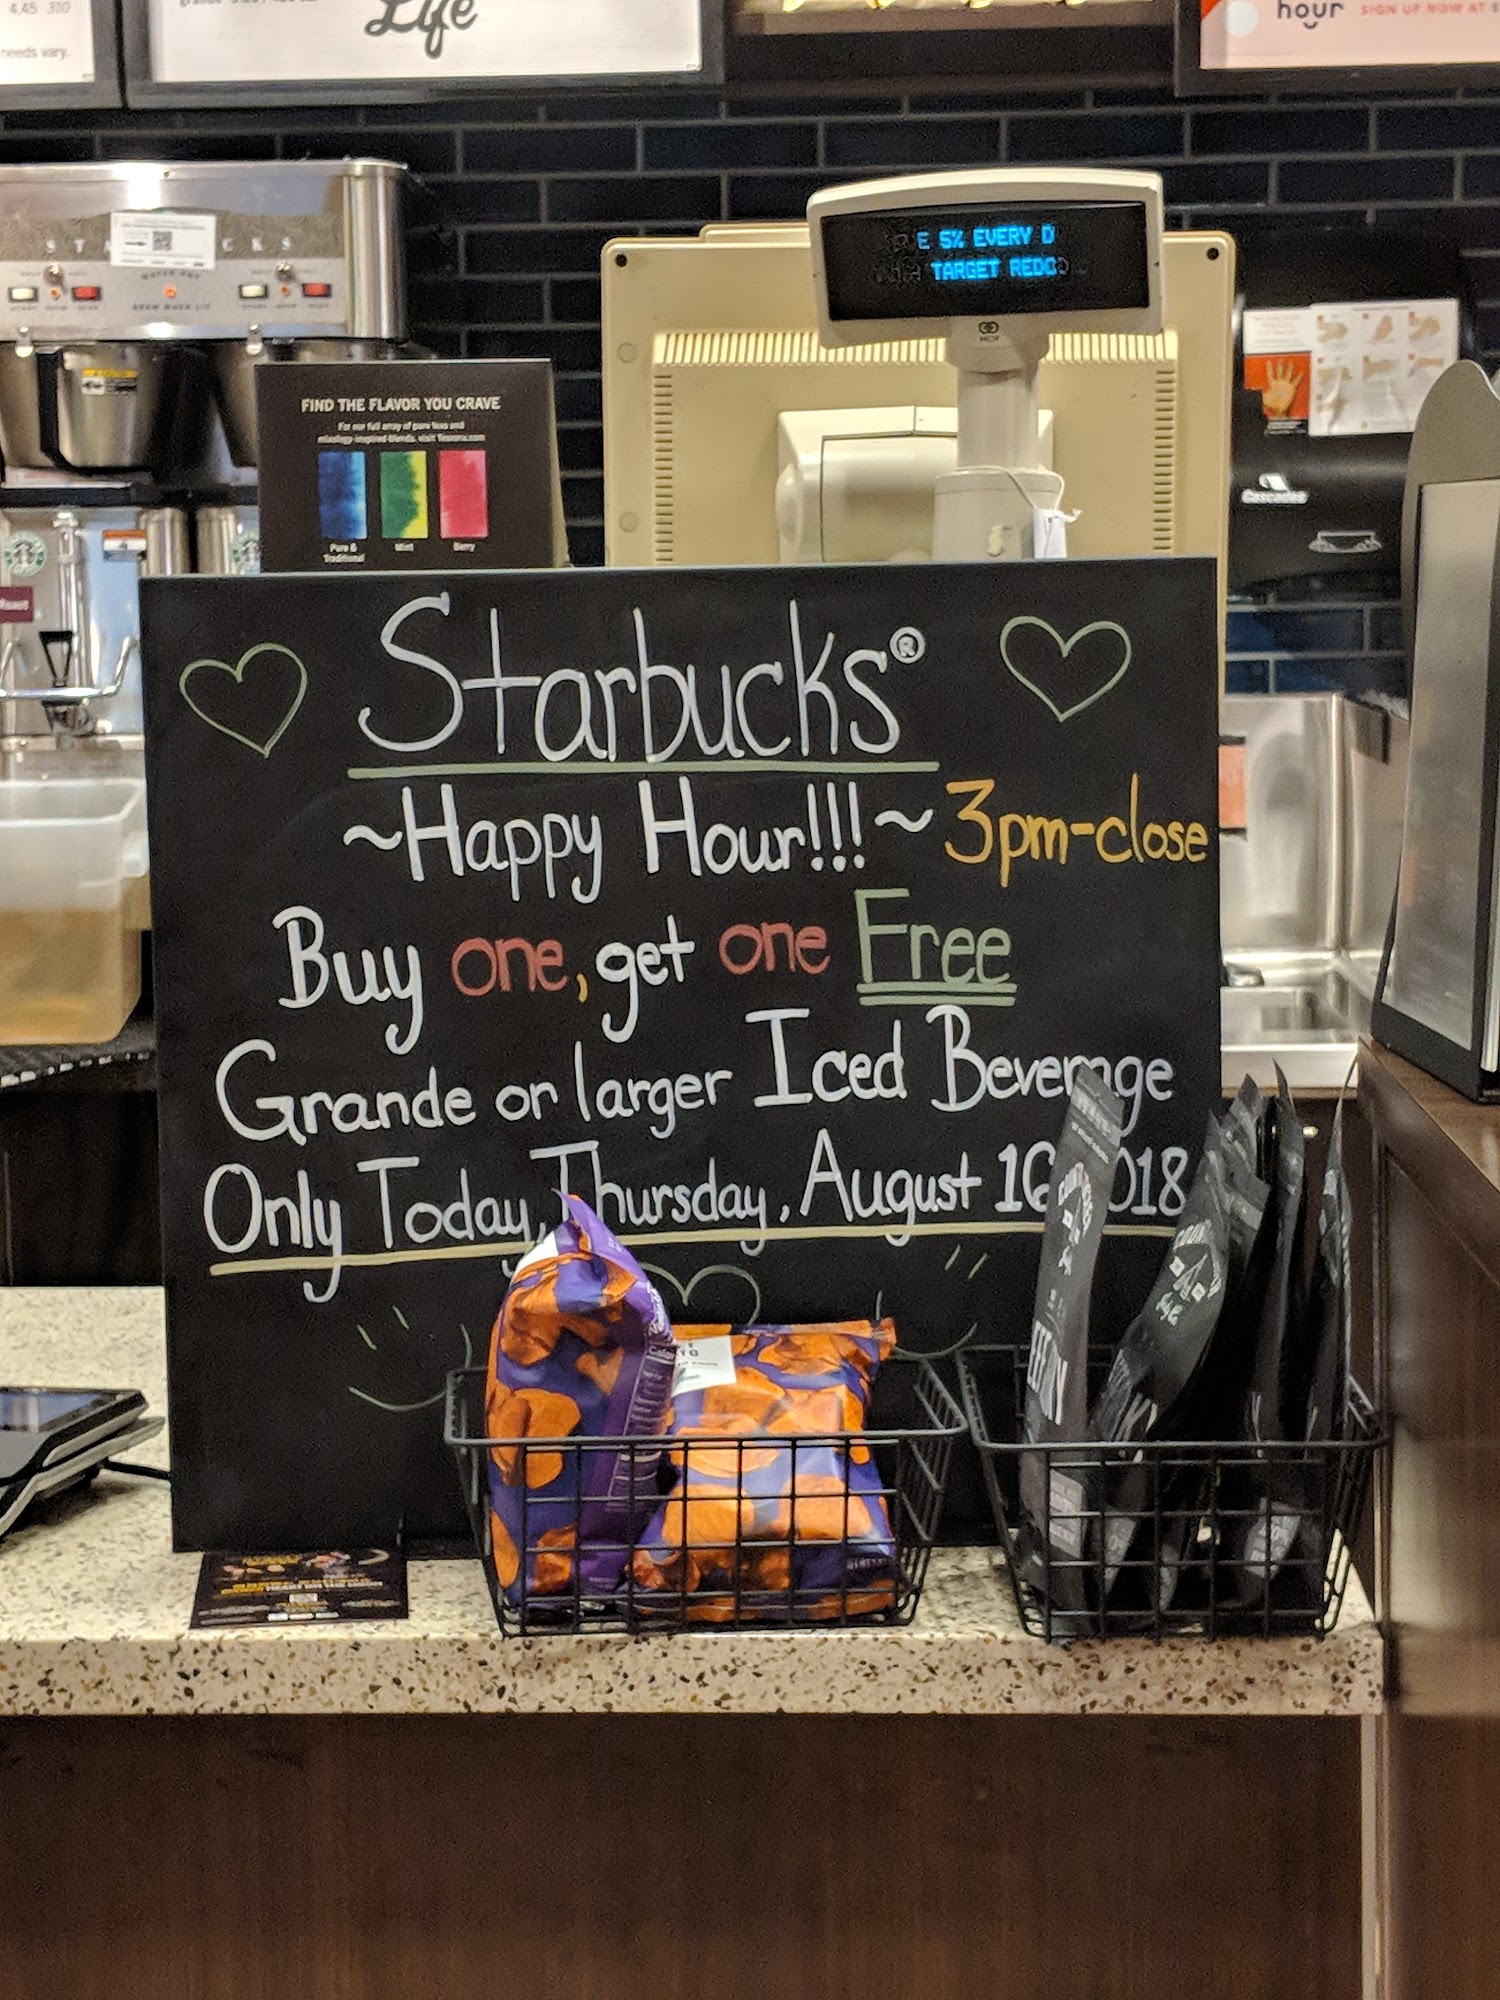 4.45 310
needs vary.
Life
hour SIGN UP NOW AT
E 5% EVERY D
TARGET REDC
FIND THE FLAVOR YOU CRAVE
For our full array of pure teas and
mixology-inspired blends, visit Teavana.com
Pure & Traditional Mint Berry
Cascades
Starbucks®
~Happy Hour!!!~ 3pm-close
Buy one, get one Free
Grande or larger Iced Beverage
Only Today, Thursday, August 16 018